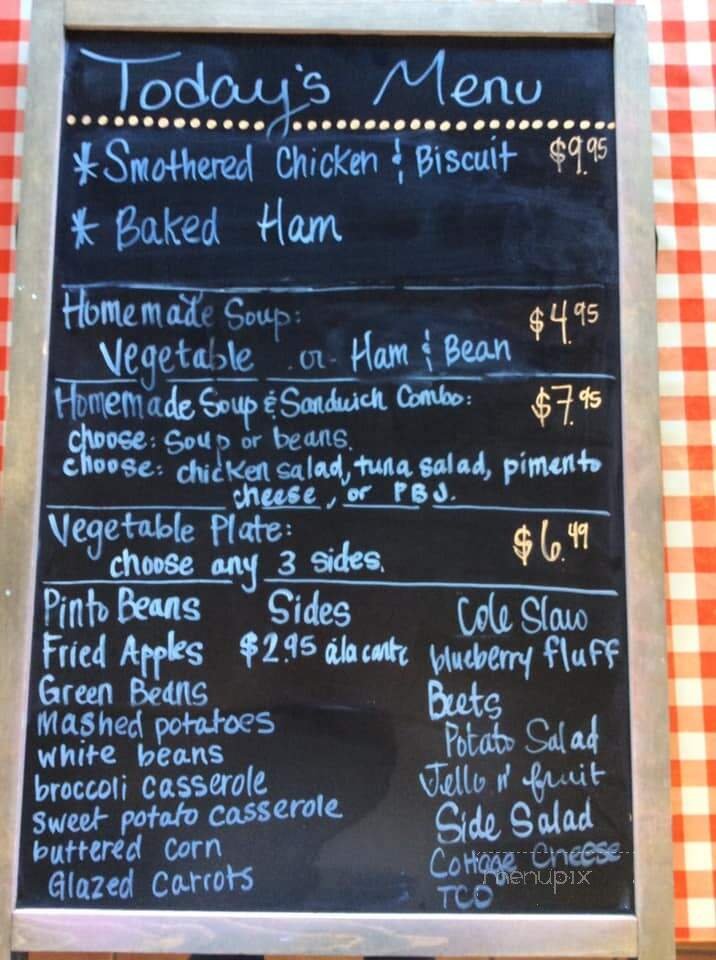 Today's Menu
* Smothered Chicken & Biscuit $9.95
* Baked Ham
Homemade Soup: $4.95
Vegetable or Ham & Bean
Homemade Soup & Sandwich Combo: $7.95
choose: Soup or beans.
choose: chicken salad, tuna salad, pimento
cheese, or PBJ.
Vegetable Plate: $6.49
choose any 3 sides.
Sides
$2.95 àla carte
Pinto Beans
Fried Apples
Green Beans
Mashed potatoes
white beans
broccoli casserole
sweet potato casserole
buttered corn
Glazed Carrots
Cole Slaw
blueberry fluff
Beets
Potato Salad
Jello n' fruit
Side Salad
Cottage Cheese
TCO
menupix